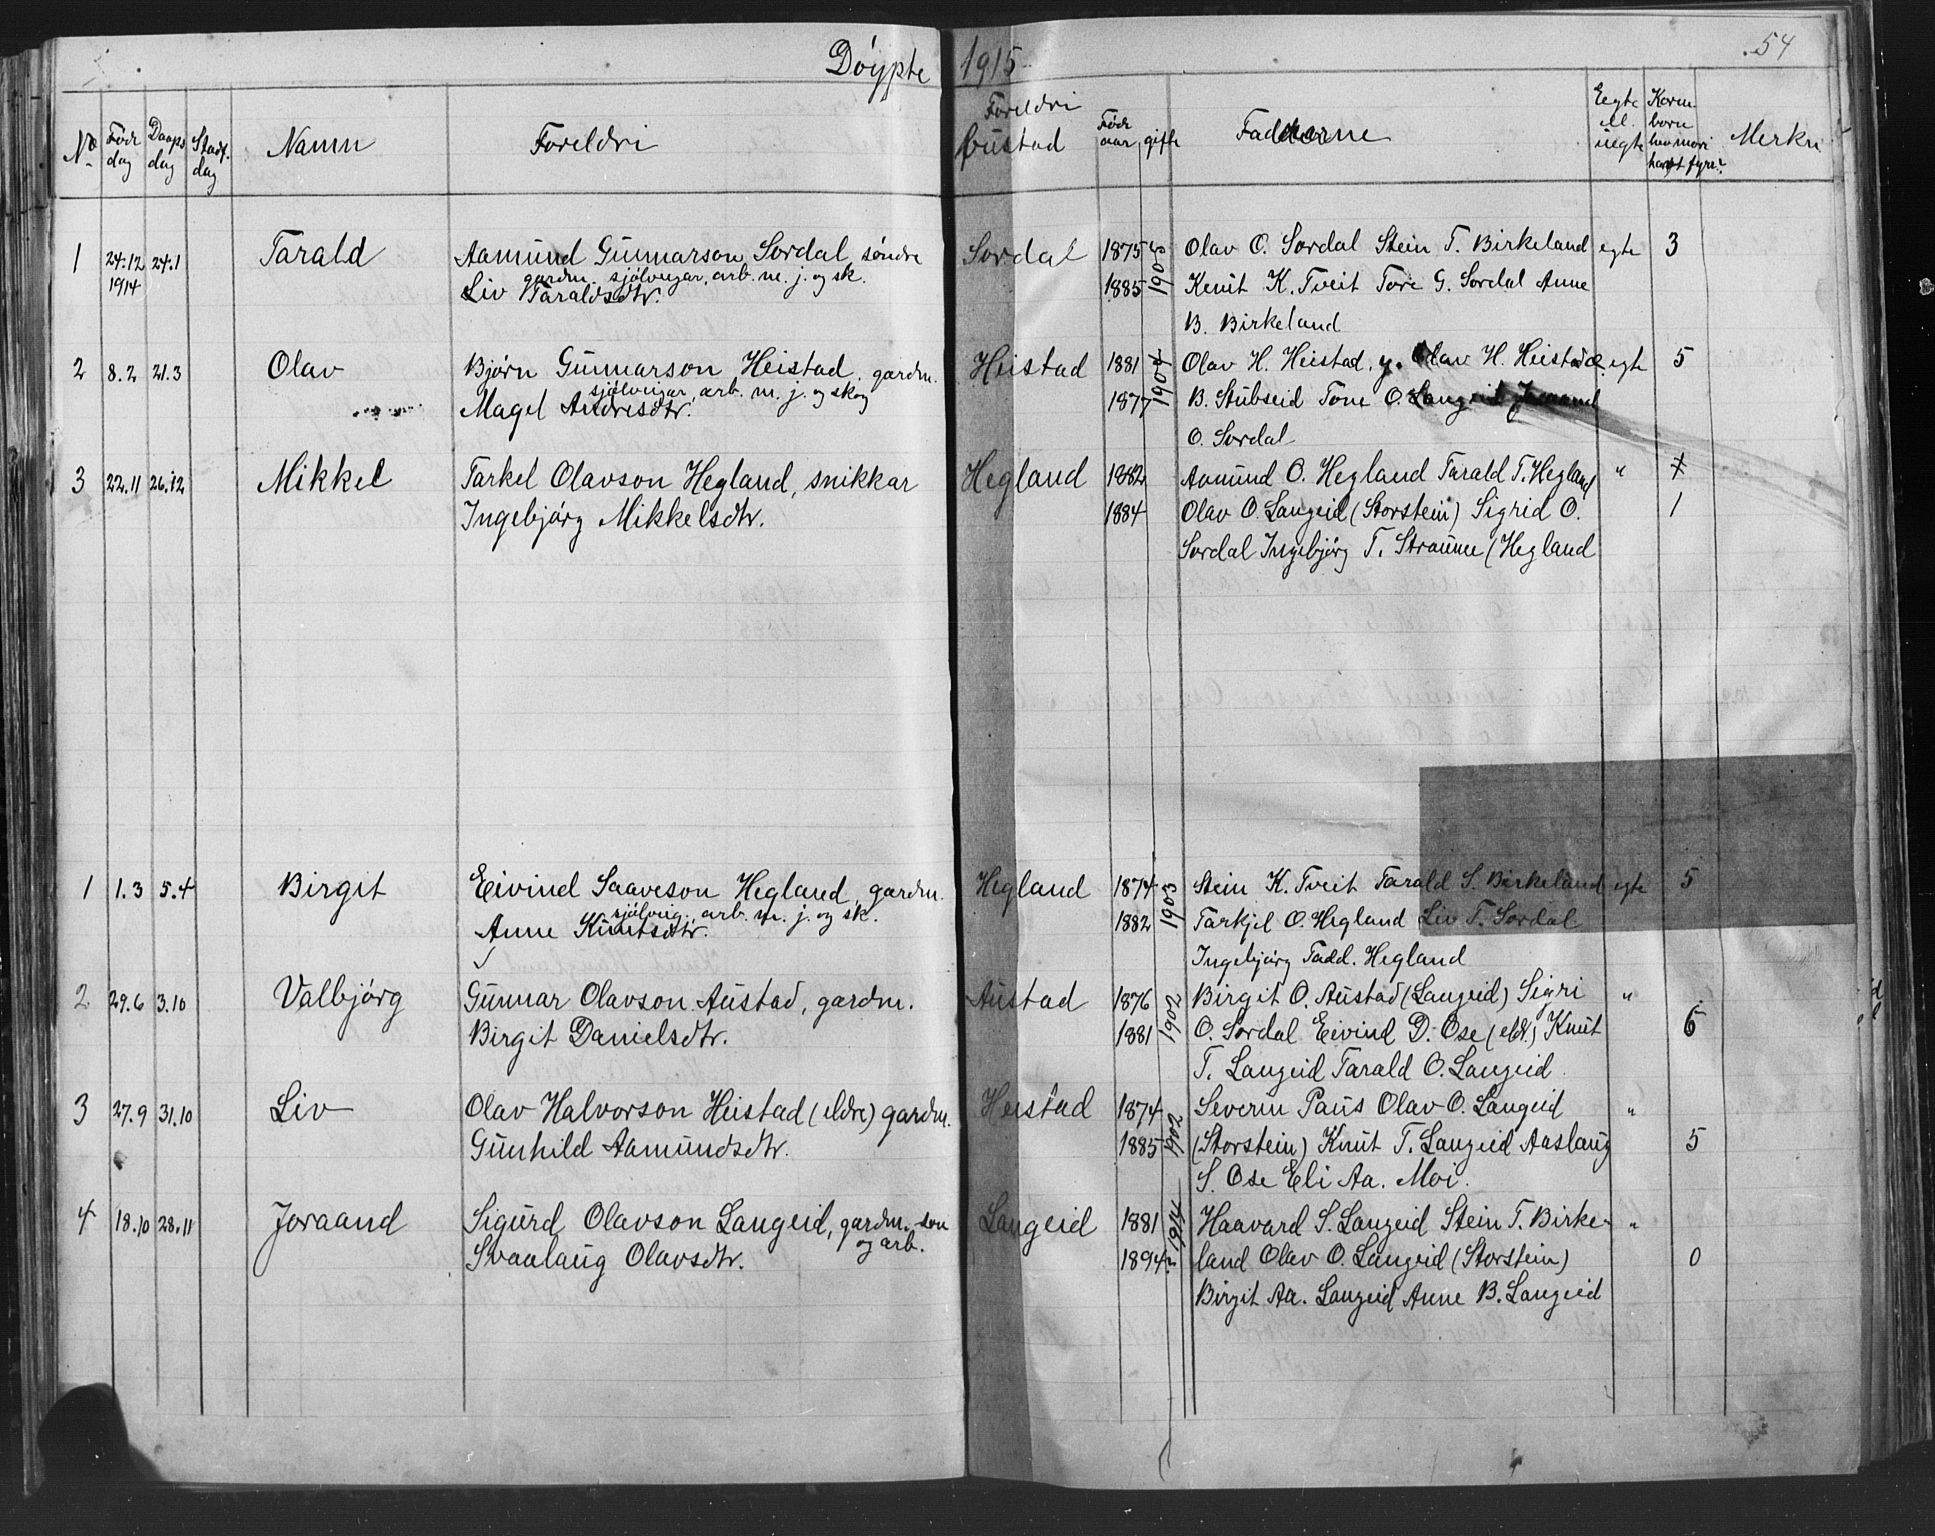 Døypte 1915 54
No Føde dag Daaps dag Stadf. dag Namn Foreldri Foreldri bustad Født aar gifte Fadderne Egte el. uegte Korm. born hev mori havt fyre? Merkn
1 24.12 24.1 Tarald Aamund Gunnarson Sordal søndre Sordal 1875 1905 Olav O. Sordal Stein T. Birkeland egte 3
1914 gardm. sjølveigar, arb. m. j. og sk.
Liv Taraldsdtr. 1885 Knut K. Tveit Tore G. Sordal Anne
B. Birkeland
2 8.2 21.3 Olav Bjørn Gunnarson Heistad, gardm. Heistad 1881 1904 Olav H. Heistad, y. Olav H. Heistad e. egte 5
sjølveigar, arb. m. j. og skog
Magel Andresdtr. 1877 B. Stubseid Tone O. Langeid Joraand
O. Sordal
3 22.11 26.12 Mikkel Tarkel Olavson Hegland, snikkar Hegland 1882 Aamund O. Hegland Tarald T. Hegland "
Ingebjørg Mikkelsdtr. 1884 Olav O. Langeid (Storstein) Sigrid O. 1
Sordal Ingebjørg T. Straume (Hegland
1 1.3 5.4 Birgit Eivind Saaveson Hegland, gardm. Hegland 1874 1903 Stein K. Tveit Tarald S. Birkeland egte 5
sjølveig., arb. m. j. og sk.
Anne Knutsdtr. 1882 Tarkjel O. Hegland Liv T. Sordal
Ingebjørg Tadd. Hegland
2 29.6 3.10 Valbjørg Gunnar Olavson Austad, gardm. Austad 1876 1902 Birgit O. Austad (Langeid) Sigri "
Birgit Danielsdtr. 1881 O. Sordal Eivind D. Ose (eldr.) Knut 6
T. Langeid Tarald O. Langeid
3 27.9 31.10 Liv Olav Halvorson Heistad (eldre) gardm. Heistad 1874 1902 Severin Paus Olav O. Langeid "
Gunhild Aamundsdtr. 1885 (Storstein) Knut T. Langeid Aaslaug 5
S. Ose Eli Aa. Moi.
4 18.10 28.11 Joraand Sigurd Olavson Langeid, gardm. son Langeid 1881 1914 Haavard S. Langeid Stein T. Birke- "
og arb.
Svaalaug Olavsdtr. 1894 land Olav O. Langeid (Storstein) 0
Birgit Aa. Langeid Anne B. Langeid